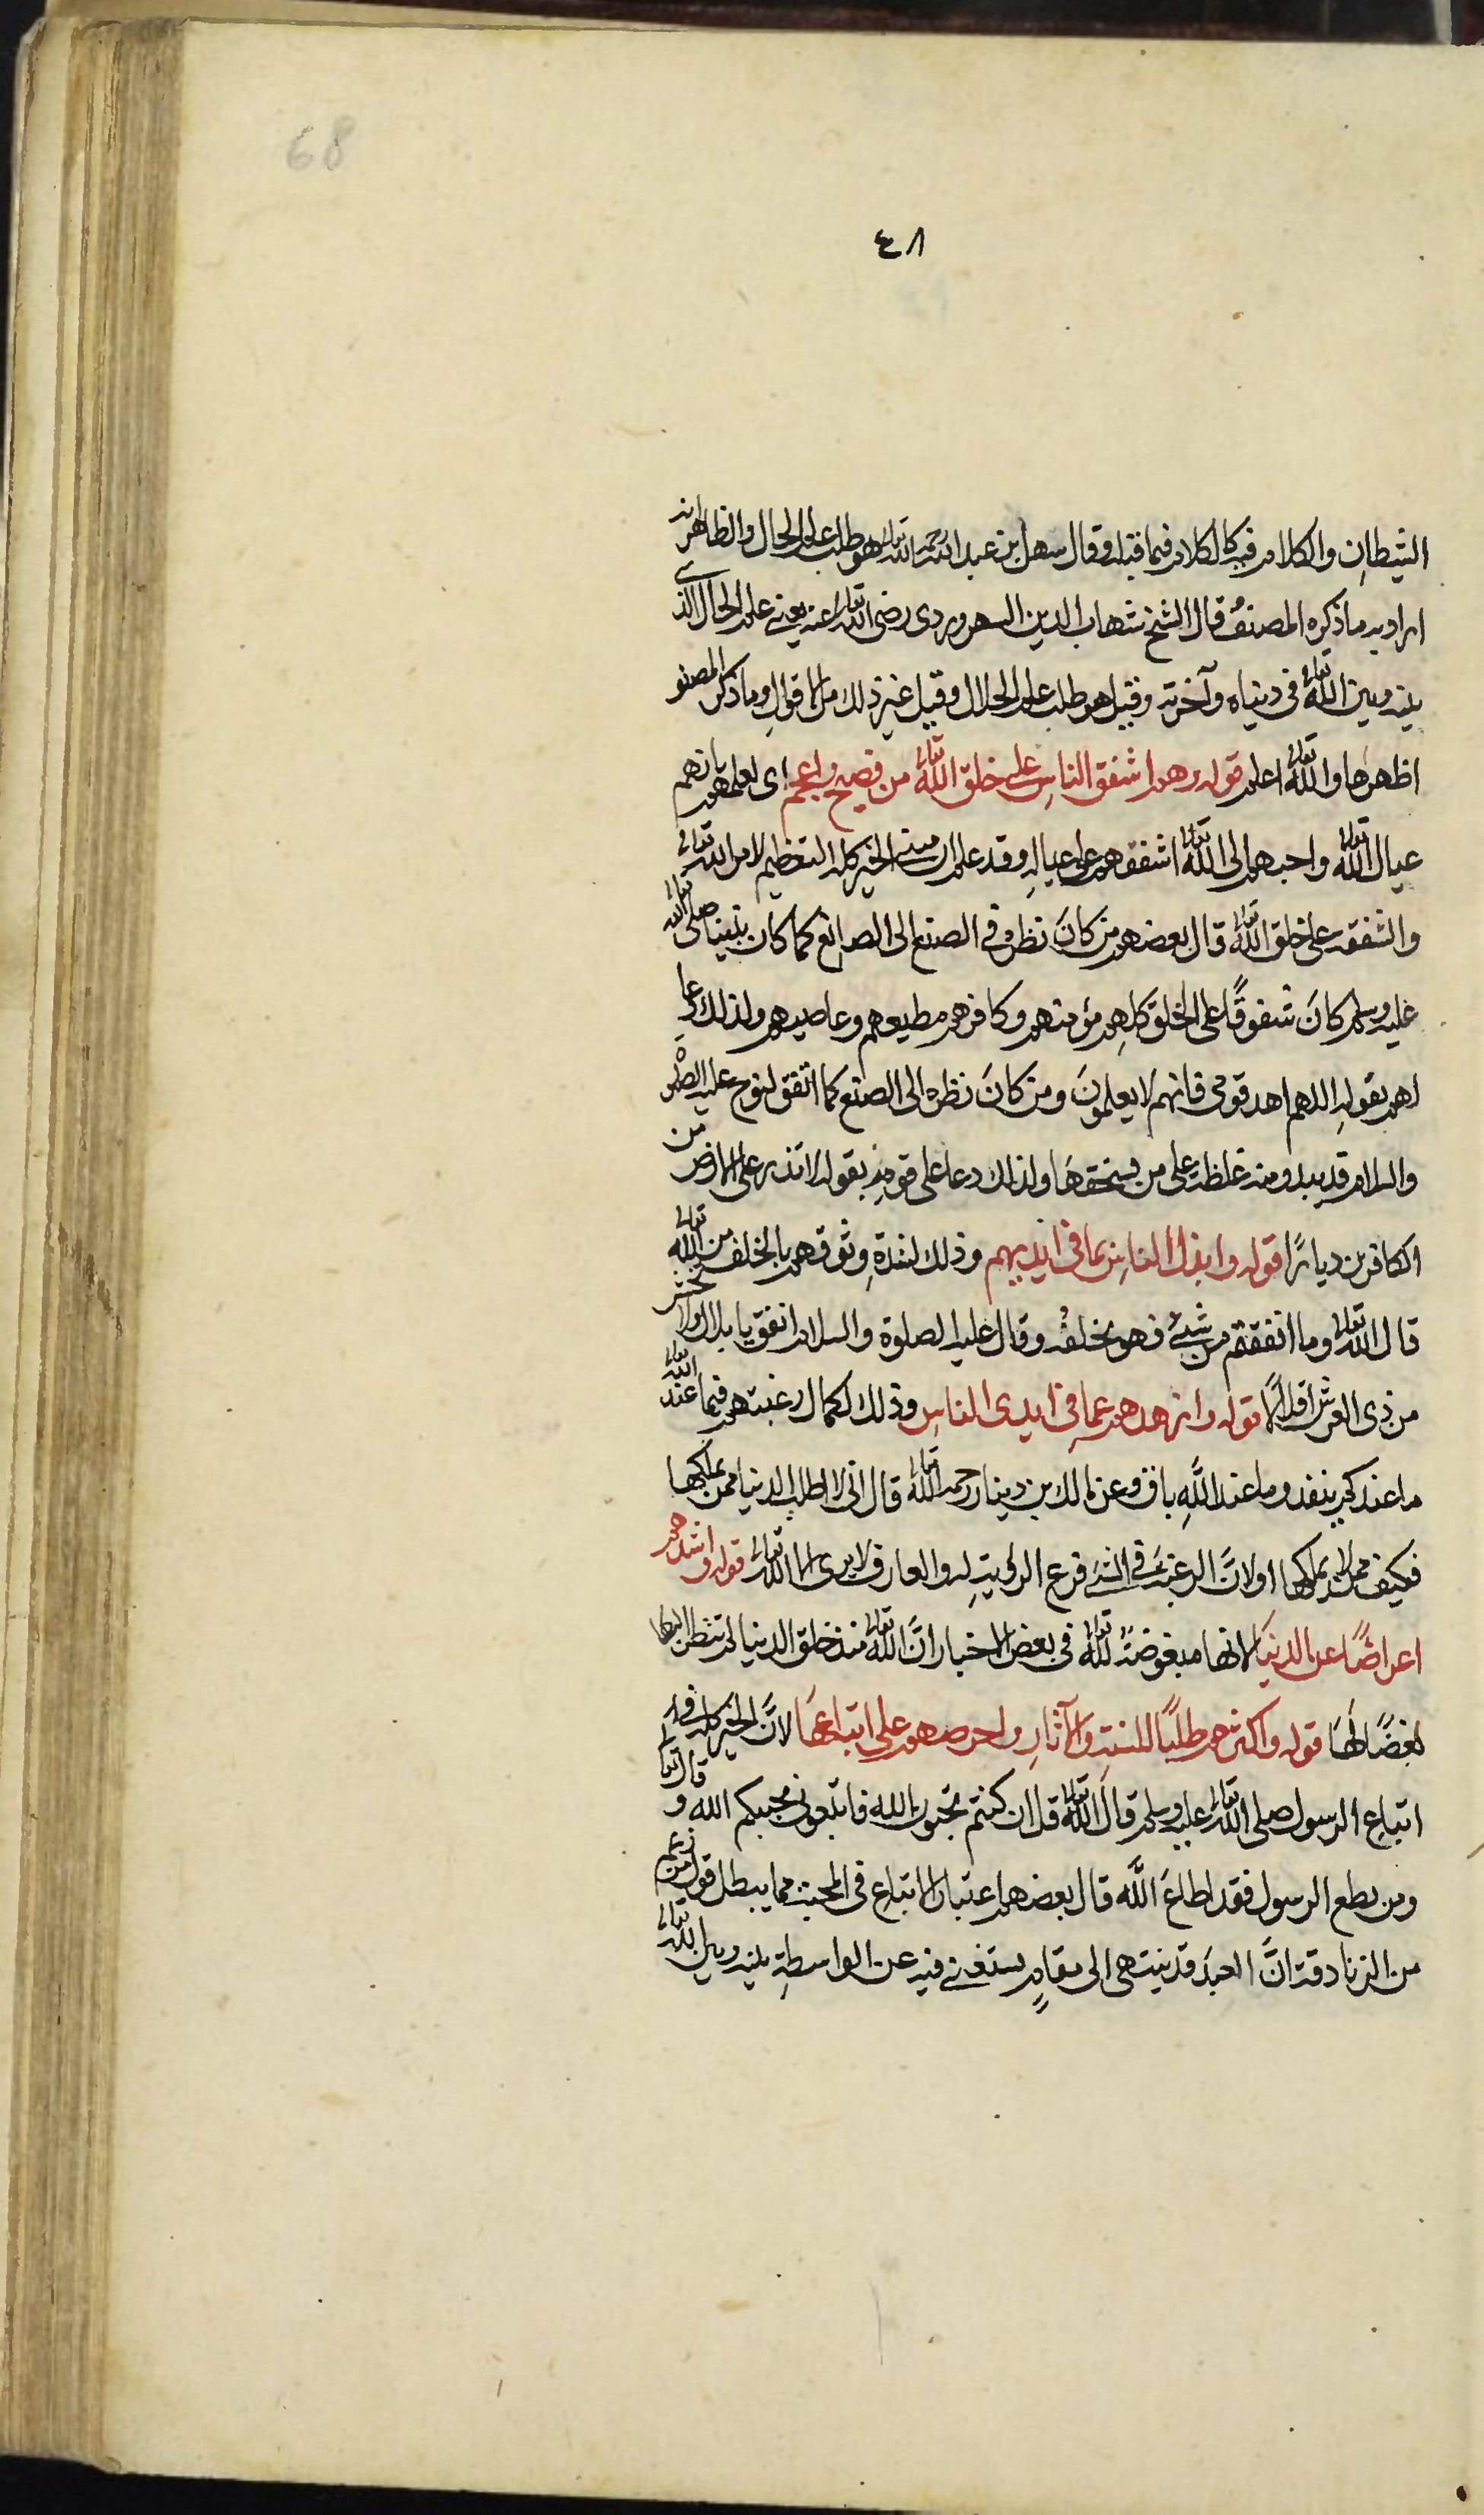 68
٤٨
الشيطان والكلام فيه كالكلام فيما قبله وقال سهل بن عبد الله رحمه الله تعالى هو طلب علم الحال والظاهر انه
اراد به ما ذكره المصنف قال الشيخ شهاب الدين السهروردى رضى الله تعالى عنه يعنى علم الحال الذى
بينه وبين الله تعالى فى دنياه وآخرته وقيل هو طلب علم الحلال وقيل غير ذلك من الاقوال وما ذكره المصنف
اظهرها والله تعالى اعلم قوله وهم اشفق الناس على خلق الله تعالى من فصيح واعجم اى لعلمهم بانهم
عيال الله تعالى واحبهم الى الله تعالى اشفقهم على عياله وقد علم ان مبنى الخير كله التعظيم لامر الله تعالى
والشفقة على خلق الله تعالى قال بعضهم من كان نظره فى الصنع الى الصانع كما كان نبينا صلى الله تعالى
عليه وسلم كان شفوقًا على الخلق كلهم مؤمنهم وكافرهم مطيعهم وعاصيهم ولذلك دعا
لهم بقوله اللهم اهد قومى فانهم لا يعلمون ومن كان نظره الى الصنع كما اتفق لنوح عليه الصلوة
والسلام قد يبدو منه غلظة على من يستحقها ولذلك دعا على قومه بقوله لا تذر على الارض من
الكافرين ديارًا قوله وابذل الناس بما فى ايديهم وذلك لشدة وثوقهم بالخلف من الله تعالى
قال الله تعالى وما انفقتم من شئ فهو يخلفه وقال عليه الصلوة والسلام انفق يا بلال ولا تخش
من ذى العرش اقلالًا قوله وازهدهم عما فى ايدى الناس وذلك لكمال رغبتهم فيما عند الله تعالى
ما عندكم ينفد وما عند الله باق وعن مالك بن دينار رحمه الله تعالى قال انى لا اطلب الدنيا ممن يملكها
فكيف ممن لا يملكها اولان الرغبة فى الشئ فرع الرؤية له والعارف لا يرى الا الله تعالى قوله واشدهم
اعراضًا عن الدنيا لانها مبغوضة لله تعالى فى بعض الاخبار ان الله تعالى منذ خلق الدنيا لم ينظر اليها
بغضًا لها قوله واكثرهم طلبًا للسنة والآثار واحرصهم على اتباعها لان الخير كله فى
اتباع الرسول صلى الله تعالى عليه وسلم قال الله تعالى قل ان كنتم تحبون الله فاتبعونى يحببكم الله وقال تعالى
ومن يطع الرسول فقد اطاع الله قال بعضهم اعتبار الاتباع فى المحبة مما يبطل قول من زعم
من الزنادقة ان العبد قد ينتهى الى مقام يستغنى فيه عن الواسطة بينه وبين الله تعالى